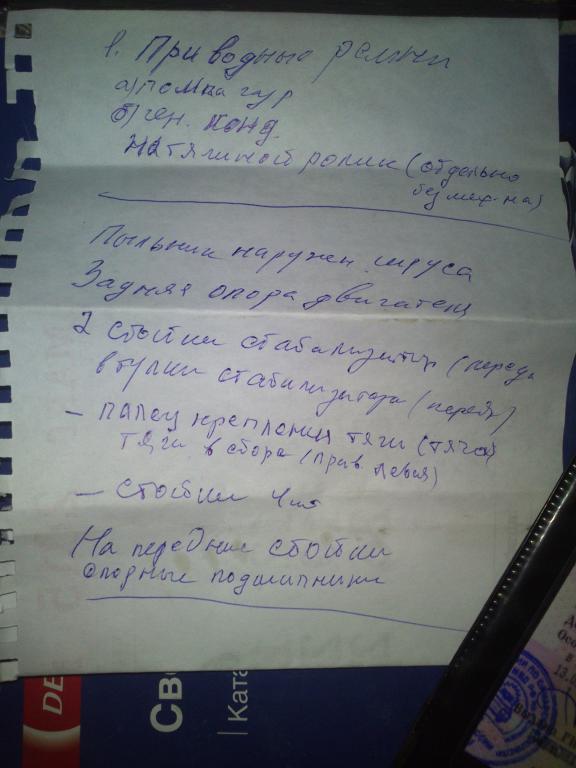 1. Приводные ремни
а) помпа гур
б) ген. конд.
натяжной ролик (отдельно
без мех-на)
Пыльник наружн. шруса
Задняя опора двигателя
2 стойки стабилизатор (перед
втулки стабилизатора (перед)
- палец крепления тяги (
тяги в сборе (прав. левая)
- стойки 4 шт
На передние стойки
опорные подшипники
DE
Св
Ката